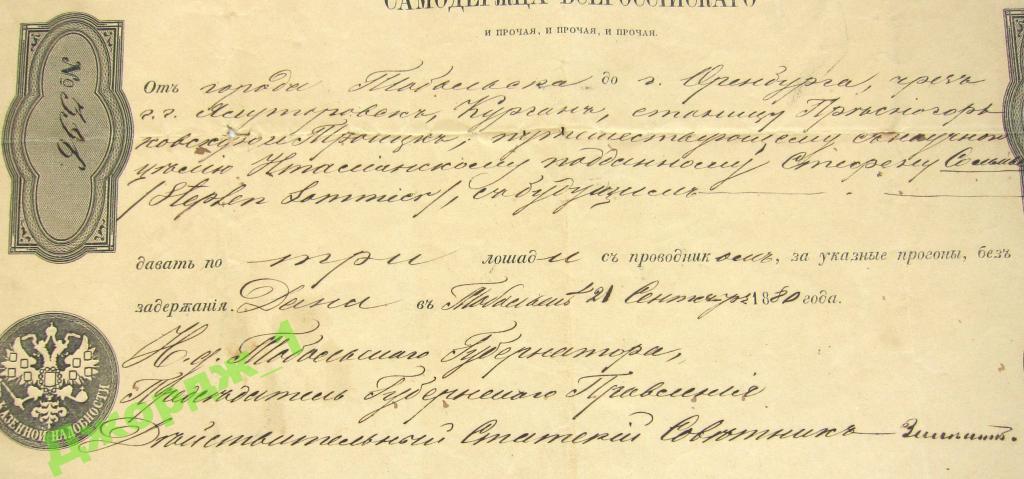 САМОДЕРЖЦА ВСЕРОССІЙСКАГО
И ПРОЧАЯ, И ПРОЧАЯ, И ПРОЧАЯ.
№ 3,96
Отъ города Тобольска до г. Оренбурга, чрезъ
г.г. Ялуторовскъ, Курганъ, станицу Прѣсногорь
ковскую и Троицкъ, путешествующему съ научною
цѣлію Италіанскому подданному Стефену
/Stephen Sommier/, съ будущимъ
давать по три лошади съ проводникомъ, за указные прогоны, безъ
задержанія. Дана въ Тобольскѣ 21 Сентября 1880 года.
И. д. Тобольскаго Губернатора,
Предсѣдатель Губернскаго Правленія
Дѣйствительный Статскій Совѣтникъ
ЗЕННОЙ НАДОБНОСТИ
Джордж_1